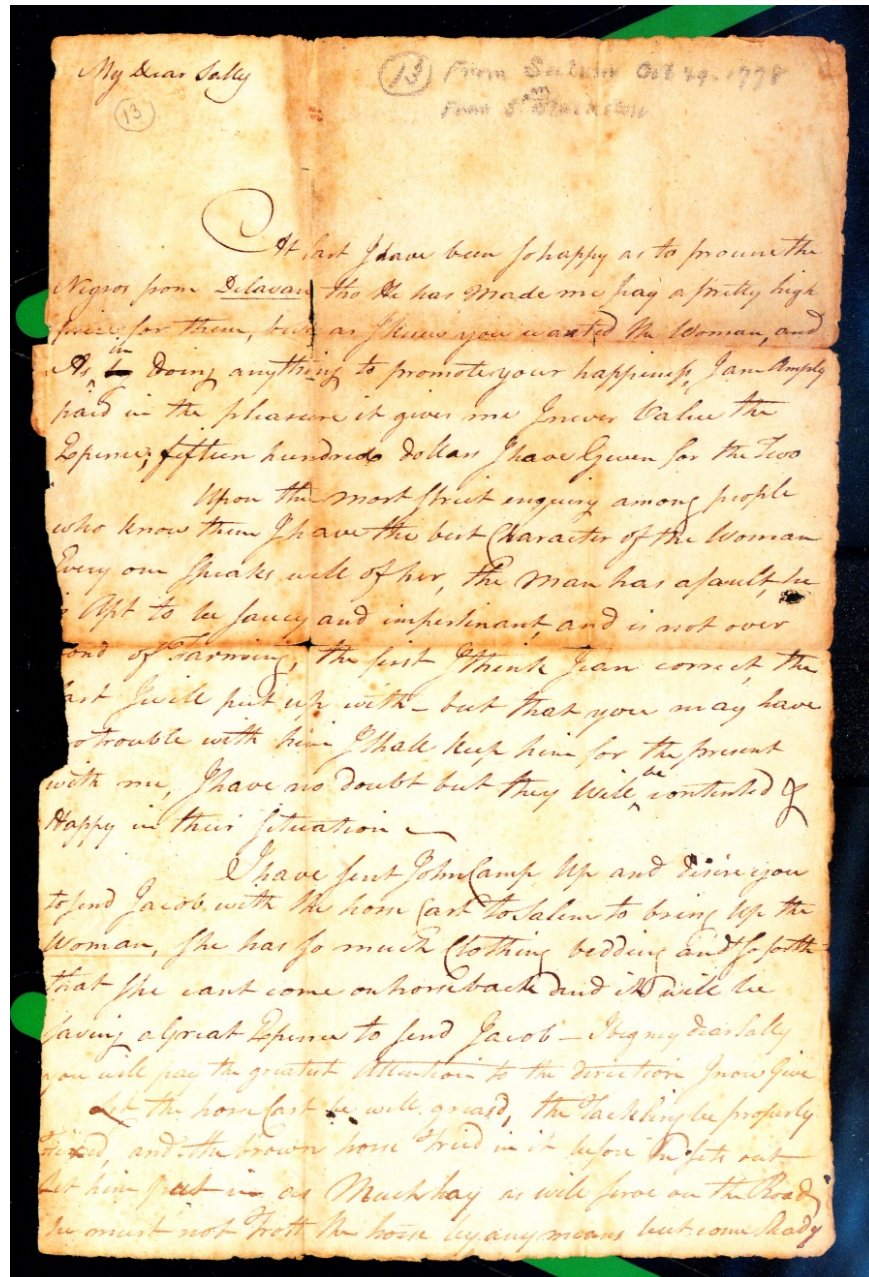 My Dear Sally
(13) From Salem Oct 29. 1778
From Sam
(13)
At last I have been so happy as to procure the
Negros from Delavan tho He has Made me pay a pretty high
price for them, but as I knew you wanted the Woman, and
As in Doing anything to promote your happiness, I am Amply
paid in the pleasure it gives me I never Value the
Expence; fifteen hundred dollars I have Given for the Two
Upon the most strict enquiry among people
who know them I have the best Character of the Woman
Every one speaks well of her, the man has a fault, he
is Apt to be saucy and impertinant, and is not over
fond of Farming, the first I think I can correct, the
last I will put up with - but that you may have
no trouble with him I shall keep him for the present
with me, I have no doubt but they will be contented &
Happy in their situation
I have sent John Camp Up and desire you
to send Jacob with the horse Cart to Salem to bring Up the
Woman, She has so much Clothing bedding and so forth
that she cant come on horseback and it will be
saving a Great Expence to send Jacob - I beg my dear Sally
you will pay the greatest Attention to the direction I now Give
Let the horse Cart be well greas'd, the Tackling be properly
Fixed, and the brown horse Tried in it before he sets out
let him put in as Much hay as will serve on the Road,
he must not Trott the horse by any means but come Steady